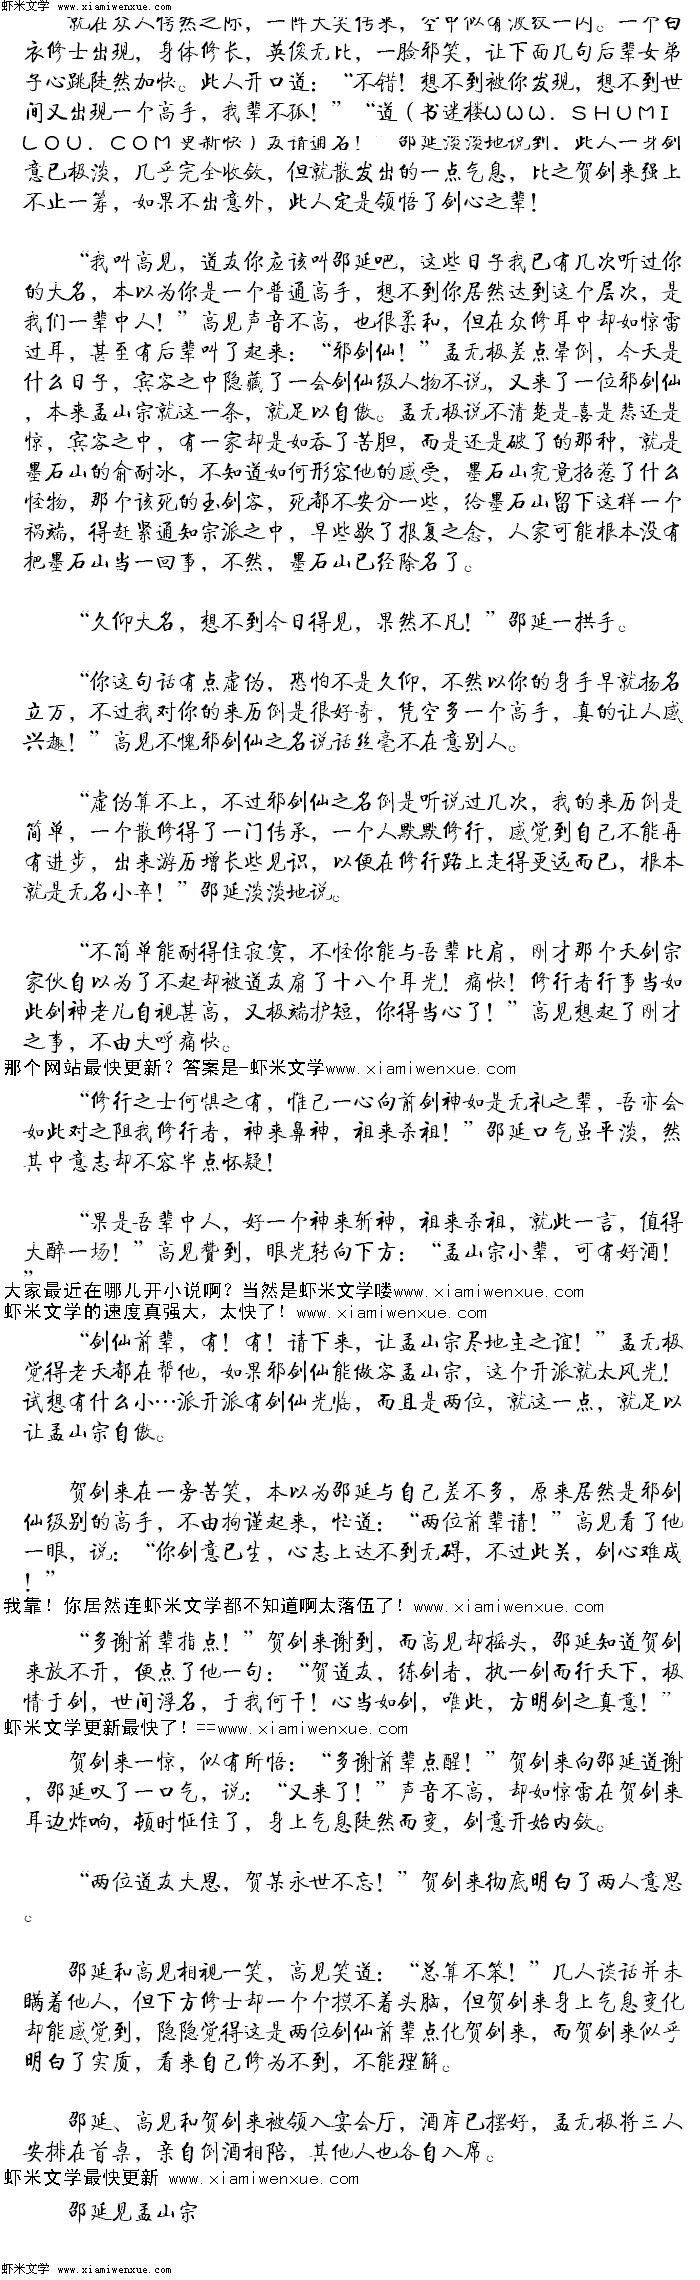 虾米文学 www.xiamiwenxue.com
就在众人愕然之际，一阵大笑传来，空中似有波纹一闪。一个白
衣修士出现，身体修长，英俊无比，一脸邪笑，让下面几句后辈女弟
子心跳陡然加快。此人开口道：“不错！想不到被你发现，想不到世
间又出现一个高手，我辈不孤！”“道（书迷楼WWW.SHUMI
LOU.COM更新快）友请通名！”邵延淡淡地说到，此人一身剑
意已极淡，几乎完全收敛，但就散发出的一点气息，比之贺剑来强上
不止一筹，如果不出意外，此人定是领悟了剑心之辈！
“我叫高见，道友你应该叫邵延吧，这些日子我已有几次听过你
的大名，本以为你是一个普通高手，想不到你居然达到这个层次，是
我们一辈中人！”高见声音不高，也很柔和，但在众修耳中却如惊雷
过耳，甚至有后辈叫了起来：“邪剑仙！”孟无极差点晕倒，今天是
什么日子，宾客之中隐藏了一会剑仙级人物不说，又来了一位邪剑仙
，本来孟山宗就这一条，就足以自傲。孟无极说不清楚是喜是悲还是
惊，宾客之中，有一家却是如吞了苦胆，而是还是破了的那种，就是
墨石山的俞耐冰，不知道如何形容他的感受，墨石山究竟招惹了什么
怪物，那个该死的玉剑客，死都不安分一些，给墨石山留下这样一个
祸端，得赶紧通知宗派之中，早些歇了报复之念，人家可能根本没有
把墨石山当一回事，不然，墨石山已经除名了。
“久仰大名，想不到今日得见，果然不凡！”邵延一拱手。
“你这句话有点虚伪，恐怕不是久仰，不然以你的身手早就扬名
立万，不过我对你的来历倒是很好奇，凭空多一个高手，真的让人感
兴趣！”高见不愧邪剑仙之名说话丝毫不在意别人。
“虚伪算不上，不过邪剑仙之名倒是听说过几次，我的来历倒是
简单，一个散修得了一门传承，一个人默默修行，感觉到自己不能再
有进步，出来游历增长些见识，以便在修行路上走得更远而已，根本
就是无名小卒！”邵延淡淡地说。
“不简单能耐得住寂寞，不怪你能与吾辈比肩，刚才那个天剑宗
家伙自以为了不起却被道友扇了十八个耳光！痛快！修行者行事当如
此剑神老儿自视甚高，又极端护短，你得当心了！”高见想起了刚才
之事，不由大呼痛快。
那个网站最快更新？答案是-虾米文学www.xiamiwenxue.com
“修行之士何惧之有，惟已一心向前剑神如是无礼之辈，吾亦会
如此对之阻我修行者，神来鼻神，祖来杀祖！”邵延口气虽平淡，然
其中意志却不容半点怀疑！
“果是吾辈中人，好一个神来斩神，祖来杀祖，就此一言，值得
大醉一场！”高见赞到，眼光转向下方：“孟山宗小辈，可有好酒！
”
大家最近在哪儿开小说啊？当然是虾米文学喽www.xiamiwenxue.com
虾米文学的速度真强大，太快了！www.xiamiwenxue.com
“剑仙前辈，有！有！请下来，让孟山宗尽地主之谊！”孟无极
觉得老天都在帮他，如果邪剑仙能做客孟山宗，这个开派就太风光！
试想有什么小…派开派有剑仙光临，而且是两位，就这一点，就足以
让孟山宗自傲。
贺剑来在一旁苦笑，本以为邵延与自己差不多，原来居然是邪剑
仙级别的高手，不由拘谨起来，忙道：“两位前辈请！”高见看了他
一眼，说：“你剑意已生，心志上达不到无碍，不过此关，剑心难成
！”
我靠！你居然连虾米文学都不知道啊太落伍了！www.xiamiwenxue.com
“多谢前辈指点！”贺剑来谢到，而高见却摇头，邵延知道贺剑
来放不开，便点了他一句：“贺道友，练剑者，执一剑而行天下，极
情于剑，世间浮名，于我何干！心当如剑，唯此，方明剑之真意！”
虾米文学更新最快了！==www.xiamiwenxue.com
贺剑来一惊，似有所悟：“多谢前辈点醒！”贺剑来向邵延道谢
，邵延叹了一口气，说：“又来了！”声音不高，却如惊雷在贺剑来
耳边炸响，顿时怔住了，身上气息陡然而变，剑意开始内敛。
“两位道友大恩，贺某永世不忘！”贺剑来彻底明白了两人意思
。
邵延和高见相视一笑，高见笑道：“总算不笨！”几人谈话并未
瞒着他人，但下方修士却一个个摸不着头脑，但贺剑来身上气息变化
却能感觉到，隐隐觉得这是两位剑仙前辈点化贺剑来，而贺剑来似乎
明白了实质，看来自己修为不到，不能理解。
邵延、高见和贺剑来被领入宴会厅，酒库已摆好，孟无极将三人
安排在首桌，亲自倒酒相陪，其他人也各自入席。
虾米文学最快更新 www.xiamiwenxue.com
邵延见孟山宗
虾米文学 www.xiamiwenxue.com